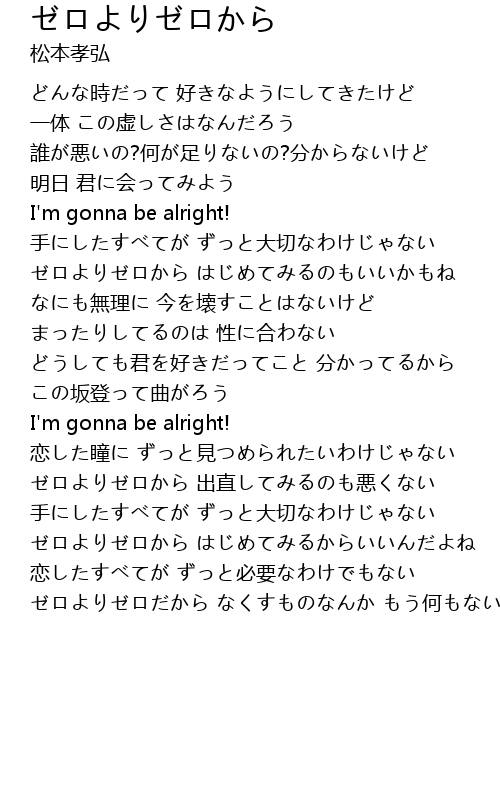 ゼロよりゼロから
松本孝弘
どんな時だって 好きなようにしてきたけど
一体 この虚しさはなんだろう
誰が悪いの?何が足りないの?分からないけど
明日 君に会ってみよう
I'm gonna be alright!
手にしたすべてが ずっと大切なわけじゃない
ゼロよりゼロから はじめてみるのもいいかもね
なにも無理に 今を壊すことはないけど
まったりしてるのは 性に合わない
どうしても君を好きだってこと 分かってるから
この坂登って曲がろう
I'm gonna be alright!
恋した瞳に ずっと見つめられたいわけじゃない
ゼロよりゼロから 出直してみるのも悪くない
手にしたすべてが ずっと大切なわけじゃない
ゼロよりゼロから はじめてみるからいいんだよね
恋したすべてが ずっと必要なわけでもない
ゼロよりゼロだから なくすものなんか もう何もない